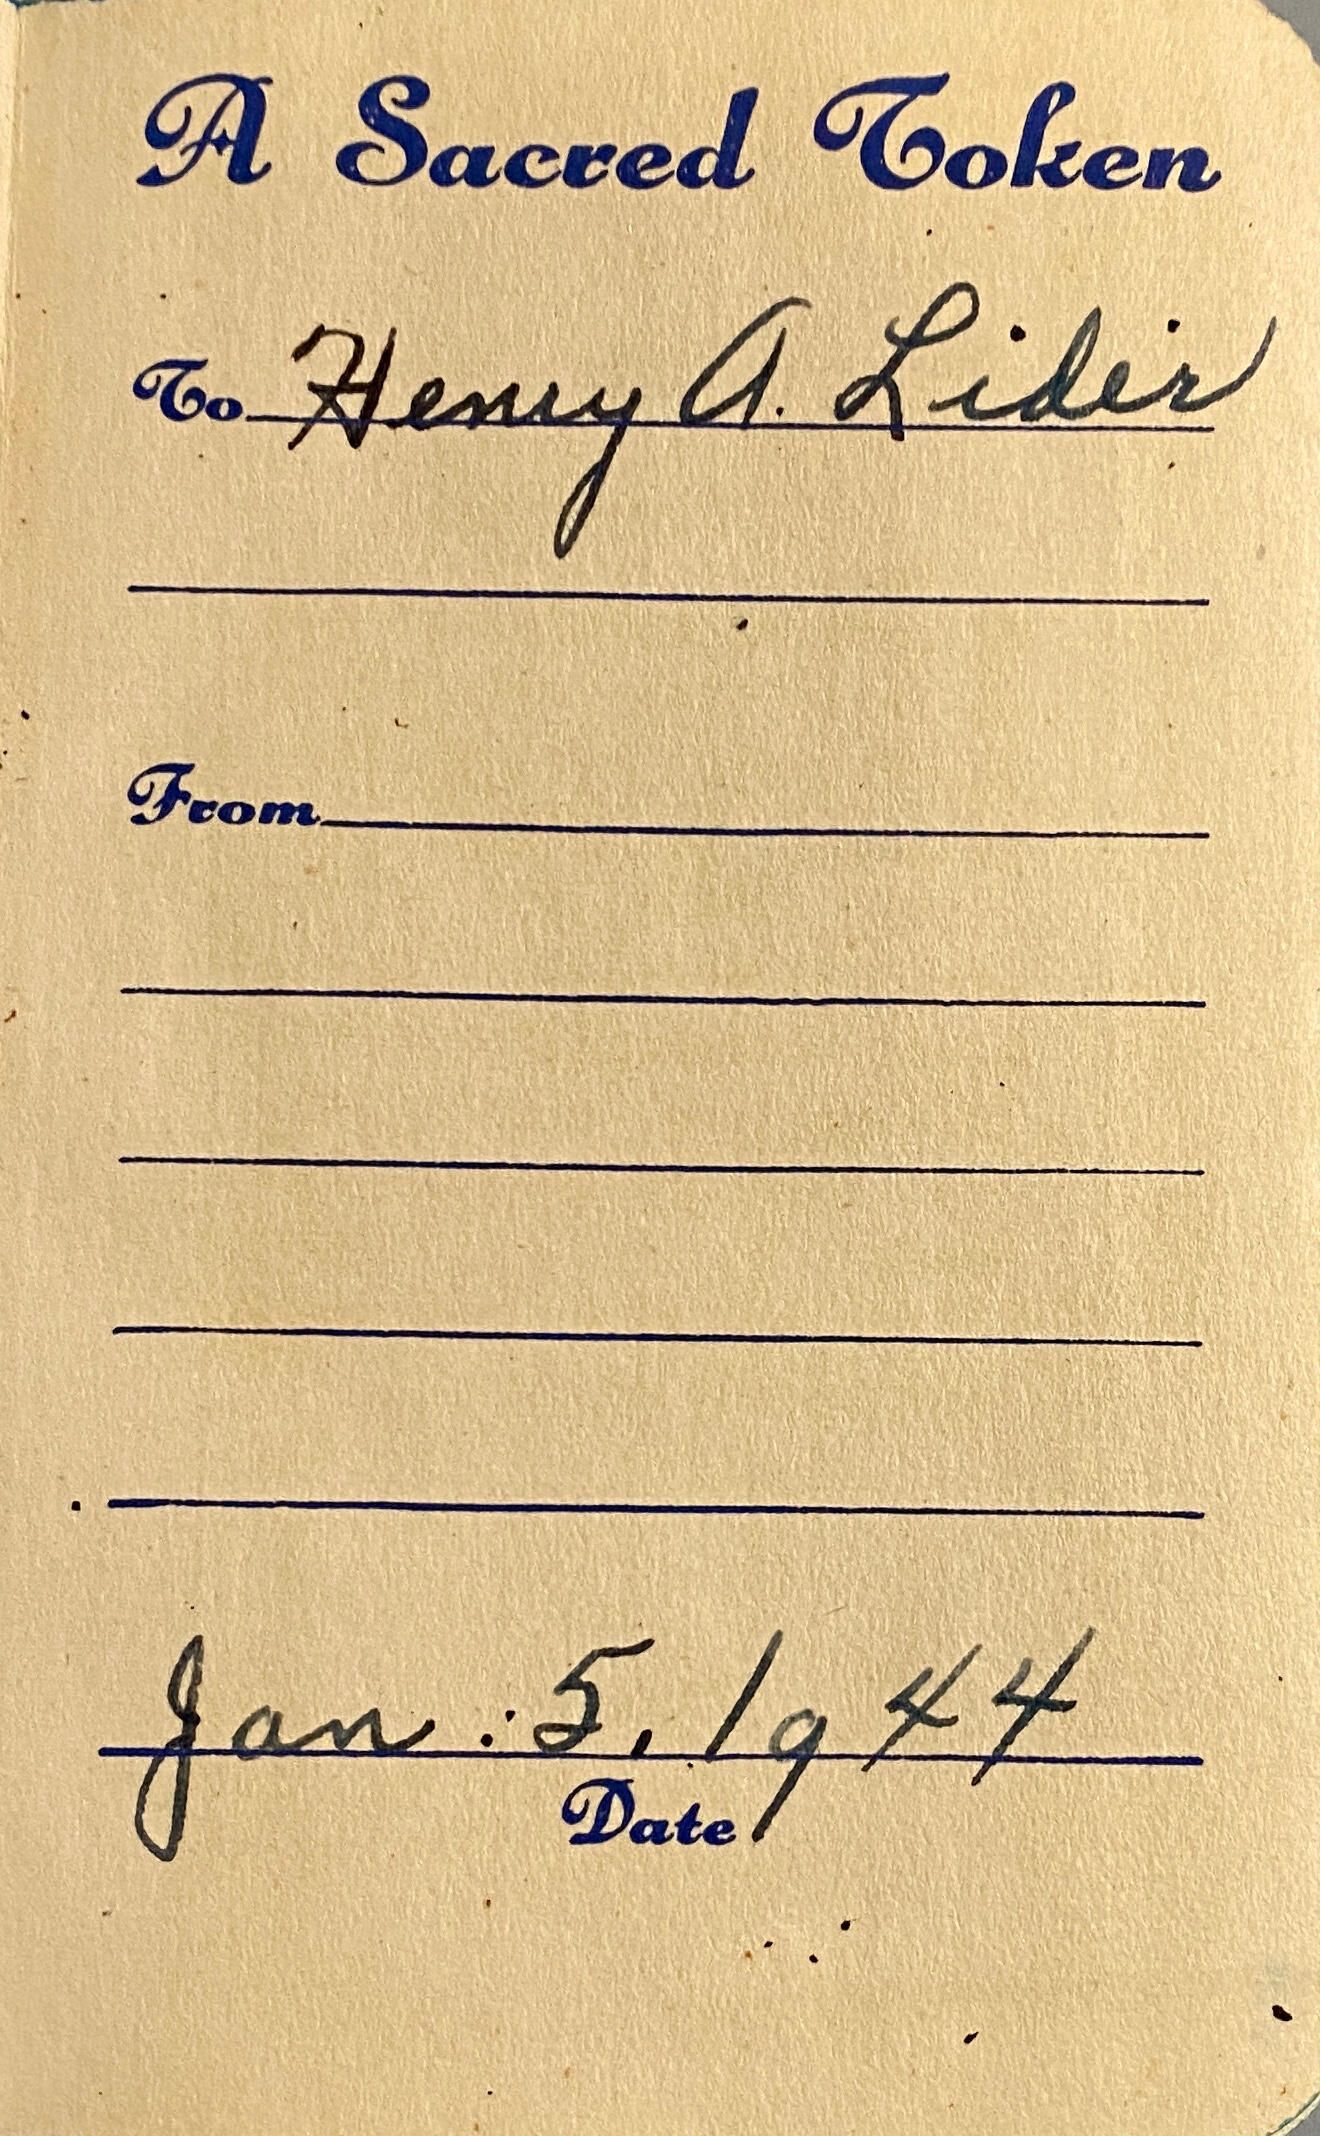 A Sacred Token
To Henry A. Lider
From
Jan: 5, 1944
Date